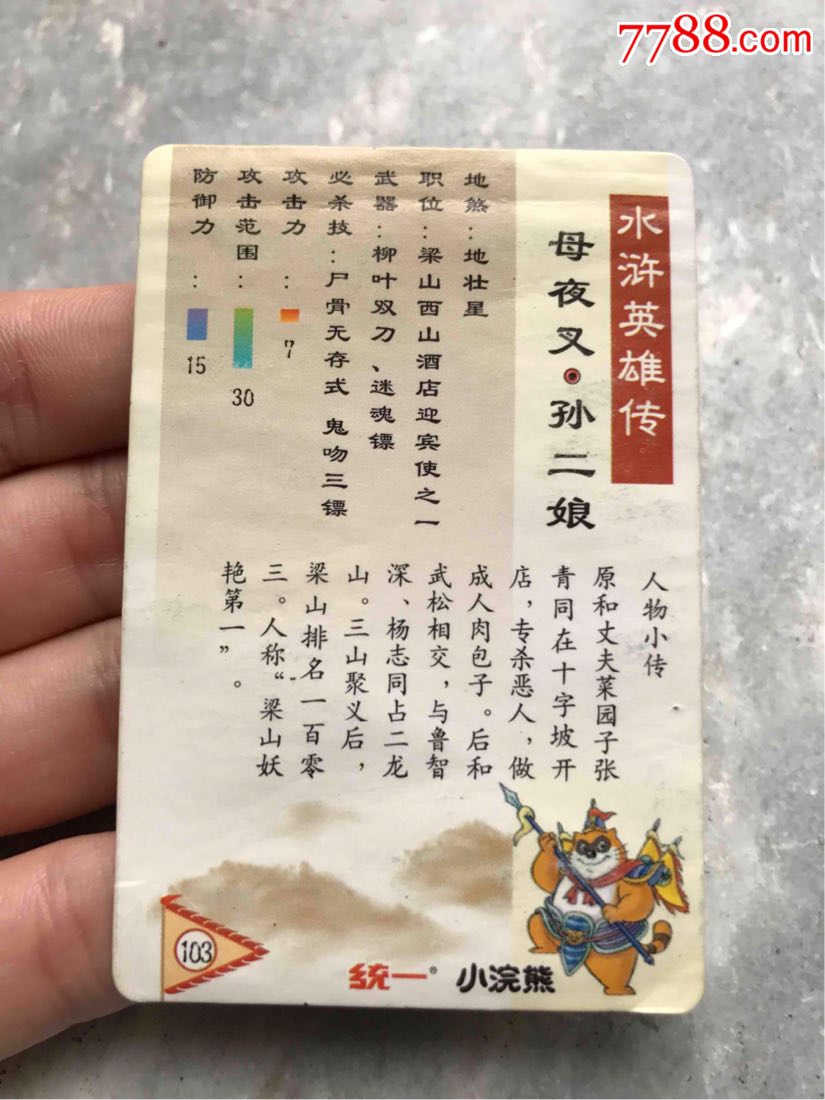 7788.com
水浒英雄传
母夜叉·孙二娘
地煞：地壮星
职位：梁山西山酒店迎宾使之一
武器：柳叶双刀、迷魂镖
必杀技：尸骨无存式 鬼吻三镖
攻击力：7
攻击范围：30
防御力：15
人物小传
原和丈夫菜园子张
青同在十字坡开
店，专杀恶人，做
成人肉包子。后和
武松相交，与鲁智
深、杨志同占二龙
山。三山聚义后，
梁山排名一百零
三。人称“梁山妖
艳第一”。
103
统一® 小浣熊